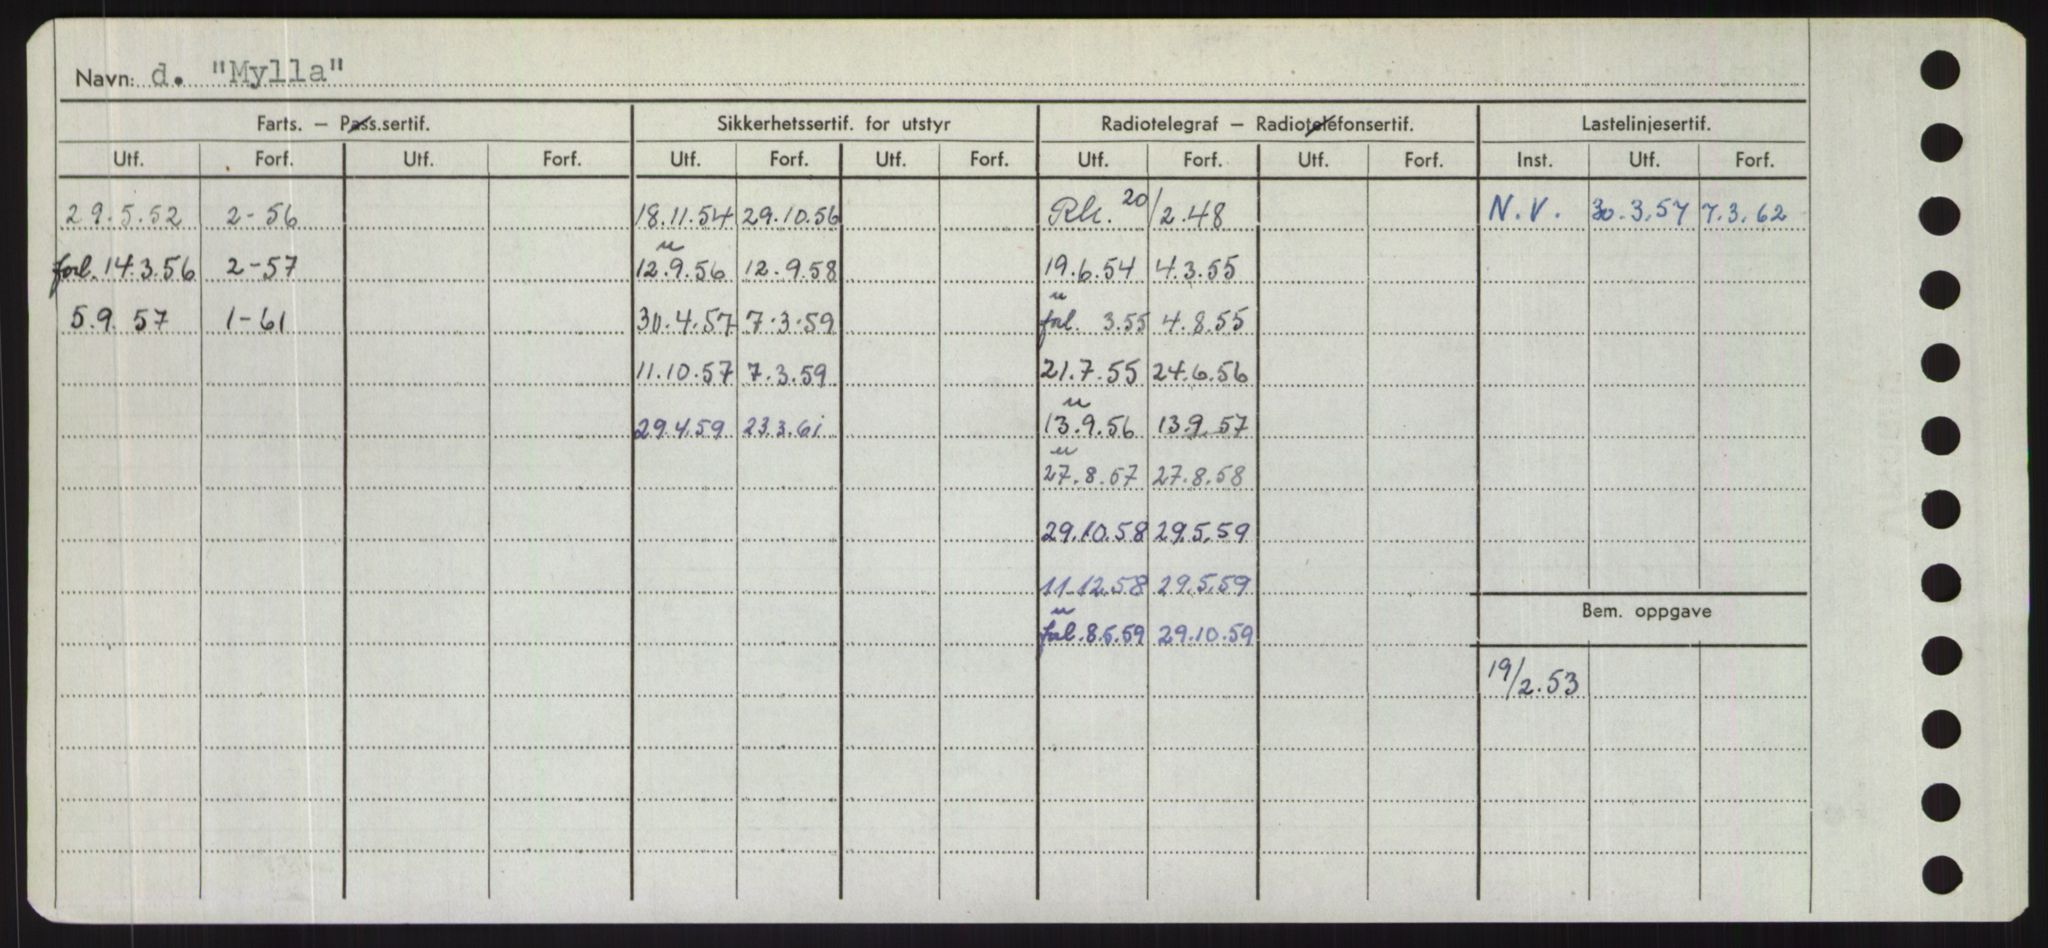 Navn: d. "Mylla"
Farts. – Pass.sertif. Sikkerhetssertif. for utstyr Radiotelegraf – Radiotelefonsertif. Lastelinjesertif.
Utf. Forf. Utf. Forf. Utf. Forf. Utf. Forf. Utf. Forf. Utf. Forf. Inst. Utf. Forf.
29.5.52 2-56 18.11.54 29.10.56 Rk. 20/2.48 N.V. 30.3.57 7.3.62
forl. 14.3.56 2-57 12.9.56 12.9.58 19.6.54 4.3.55
5.9.57 1-61 30.4.57 7.3.59 forl. 3.55 4.8.55
11.10.57 7.3.59 21.7.55 24.6.56
29.4.59 23.3.61 13.9.56 13.9.57
27.8.57 27.8.58
29.10.58 29.5.59
11.12.58 29.5.59
Bem. oppgave
forl. 8.5.59 29.10.59
19/2.53